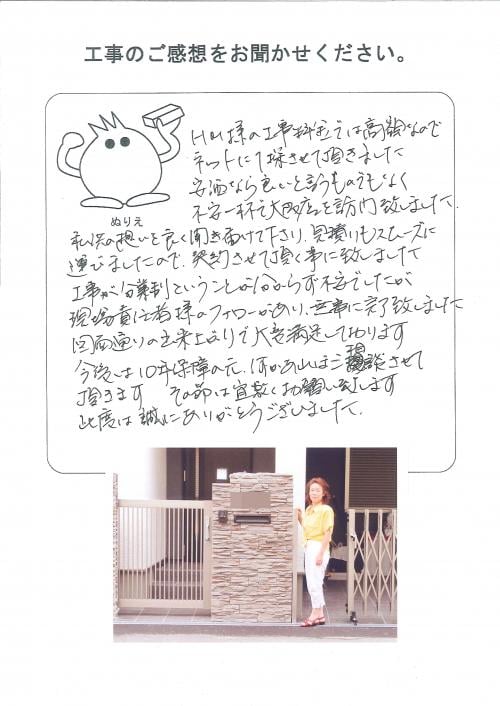 工事のご感想をお聞かせください。
ぬりえ
HM様の工事料金では高額なので
ネットにて探させて頂きました
安価なら良いと言うものでもなく
不安一杯で大阪店を訪問致しました.
私共の想いを良く聞き届けて下さり、見積りもスムーズに
運びましたので、契約させて頂く事に致しました
工事が分業制ということが分からず不安でしたが
現場責任者様のフォローがあり、無事に完了致しました
図面通りの出来上がりで大変満足しております
今後は10年保障の元、何かあればご相談させて
頂きます その節は宜敷くお願い致します
此度は誠にありがとうございました.